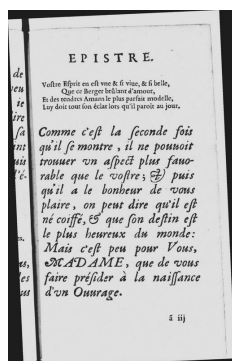 EPISTRE.
Vostre Esprit en est vne & si viue, & si belle,
Que ce Berger brûlant d'amour,
Et des tendres Amans le plus parfait modelle,
Luy doit tout son éclat lors qu'il paroît au jour.
Comme c'est la seconde fois
qu'il se montre, il ne pouuoit
trouuer vn aspect plus fauo-
rable que le vostre; & puis
qu'il a le bonheur de vous
plaire, on peut dire qu'il est
né coiffé, & que son destin est
le plus heureux du monde:
Mais c'est peu pour Vous,
MADAME, que de vous
faire présider à la naissance
d'vn Ouurage.
ã iij